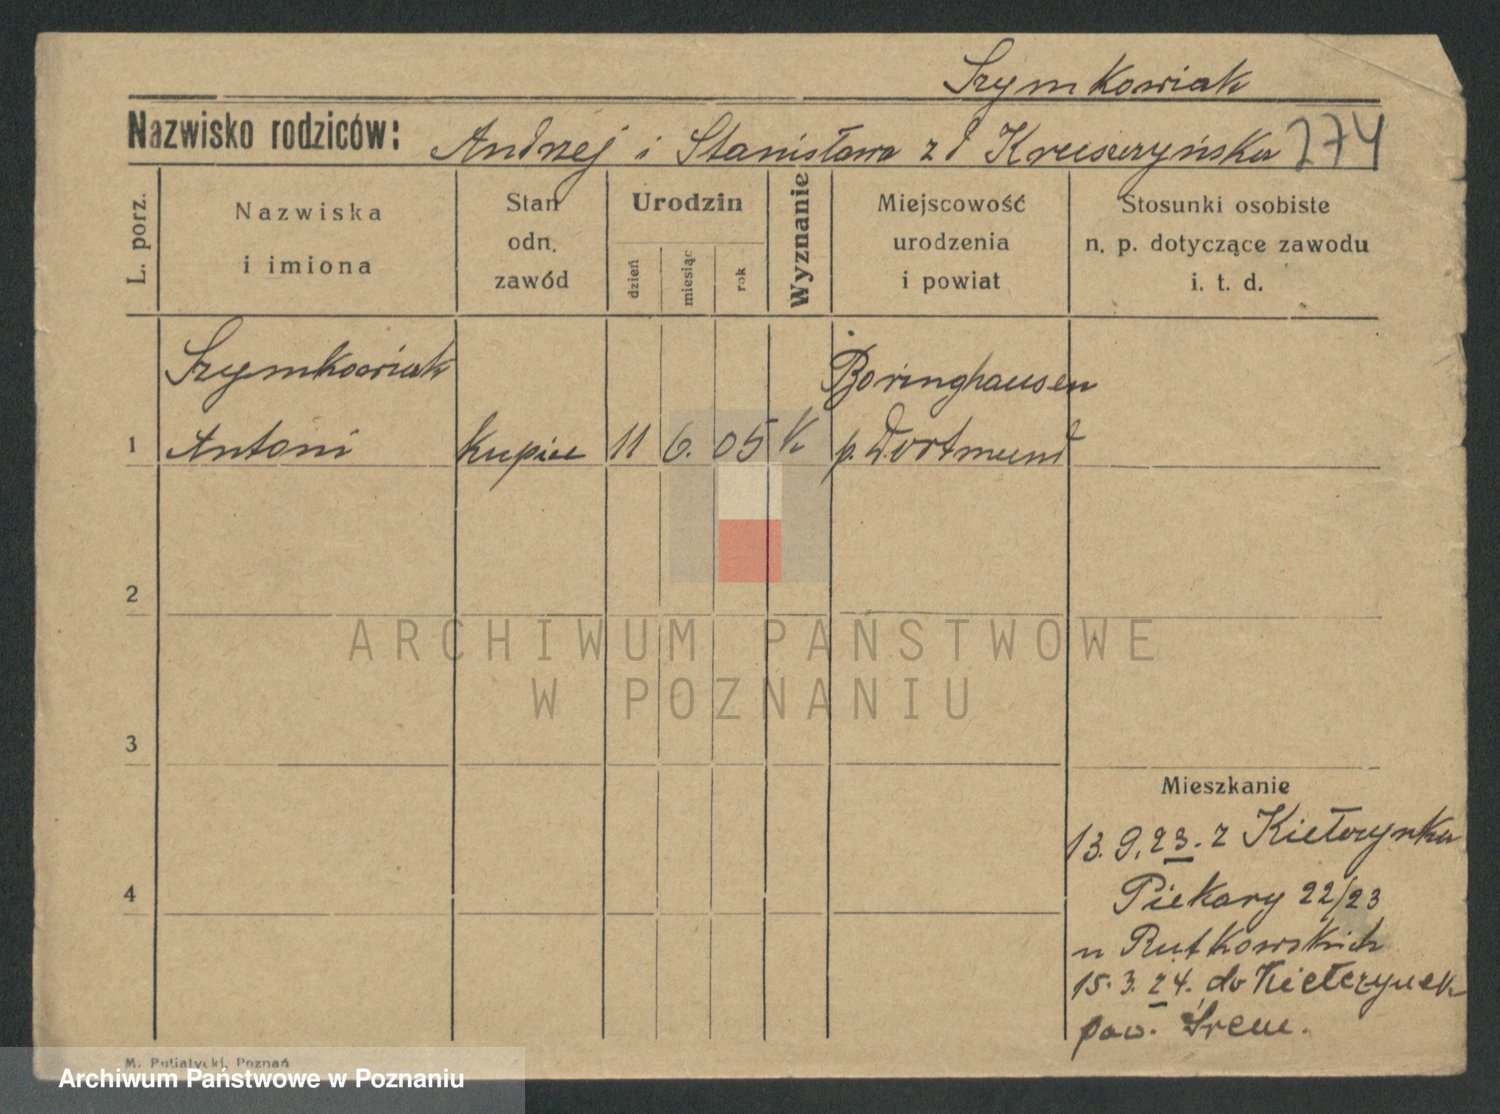 Szymkowiak
Nazwisko rodziców: Andrzej i Stanisława z d Kruszczyńska 274
L. porz.
Nazwiska i imiona
Stan odn. zawód
Urodzin
dzień miesiąc rok
Wyznanie
Miejscowość urodzenia i powiat
Stosunki osobiste n. p. dotyczące zawodu i. t. d.
Szymkowiak Böringhausen
1 Antoni kupiec 11 6. 05 K p. Dortmund
2
ARCHIWUM PAŃSTWOWE
W POZNANIU
3
Mieszkanie
13. 9. 23. z Kiełczynka
4
Piekary 22/23
u Rutkowskich
15. 3. 24. do Kiełczynek
pow. Śrem.
M. Putiatycki, Poznań
Archiwum Państwowe w Poznaniu